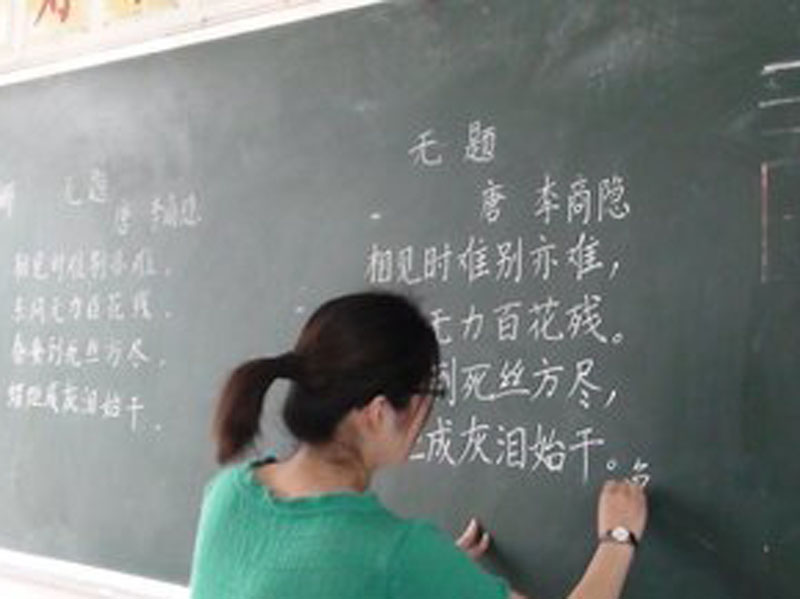 无题
唐 李商隐
相见时难别亦难.
东风无力百花残.
春蚕到死丝方尽.
蜡炬成灰泪始干.
无题
唐 李商隐
相见时难别亦难，
无力百花残。
到死丝方尽，
成灰泪始干。